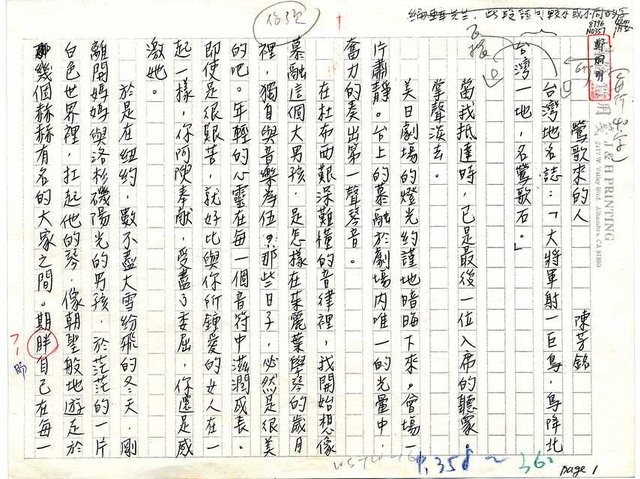 鶯歌來的人
陳芳銘
台灣地名誌：「大將軍射一巨鳥，鳥降北
台灣一地，名鶯歌石。」
當我抵達時，已是最後一位入席的聽眾。
掌聲漸去。
美日劇場的燈光約謹地暗晦下來。會場一
片肅靜。台上的慕融於劇場內唯一的光暈中，
奮力的奏出第一聲琴音。
在杜布西艱深難懂的音律裡，我開始想像
慕融這個大男孩，是怎樣在茱麗葉學琴的歲月
裡，獨自與音樂為伍？那些日子，必然是很美
的吧。年輕的心靈在每一個音符中滋潤成長。
即使是很艱苦，就好比與你所鍾愛的女人在一
起一樣，你阿諛奉獻，受盡了委屈，你還是感
激她。
於是在紐約，數不盡大雪紛飛的冬天，剛
離開媽媽與洛杉磯陽光的男孩，於茫茫的一片
白色世界裡，扛起他的琴，像朝聖般地遊走於
幾個赫赫有名的大家之間。期盼自己在每一
J & H PRINTING
2117 W. Valley Blvd. Alhambra, CA 91803
page 1